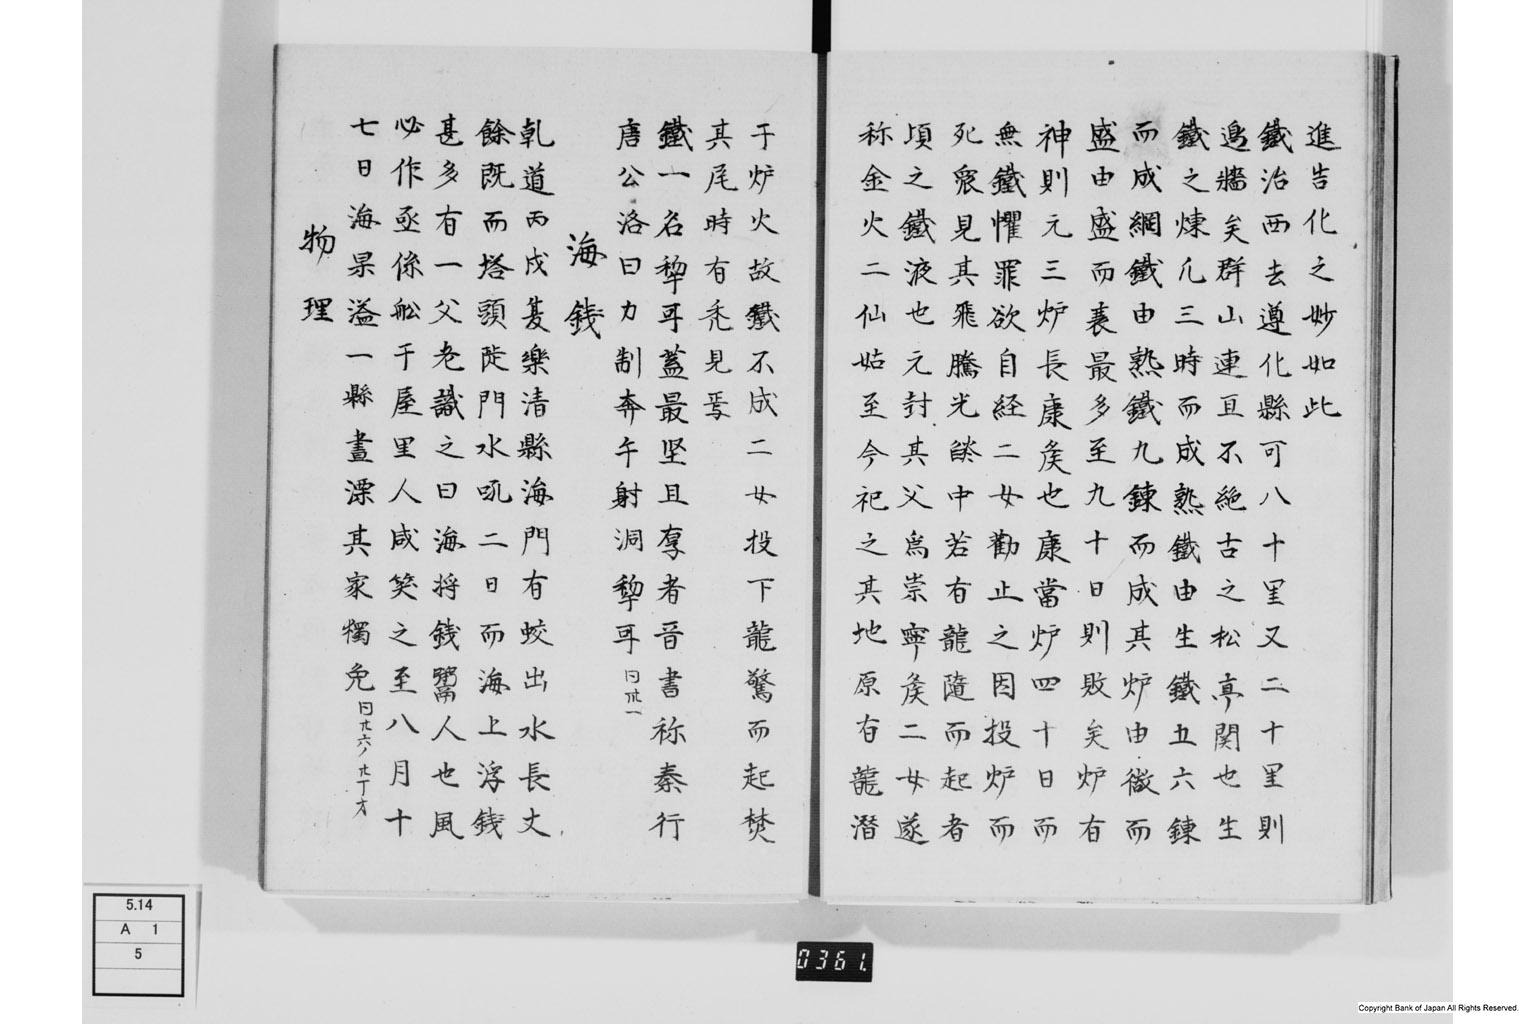 進告化之妙如此
鐵治西去遵化縣可八十里又二十里則
邉牆矣群山連亘不絕古之松亭関也生
鐵之煉凡三時而成熟鐵由生鐵五六鍊
而成綱鐵由熟鐵九鍊而成其炉由微而
盛由盛而衰最多至九十日則敗矣炉有
神則元三炉長康矦也康當炉四十日而
無鐵懼罪欲自経二女勸止之因投炉而
死衆見其飛騰光燄中若有龍隨而起者
頃之鐵液也元封其父為崇寧矦二女遂
称金火二仙姑至今祀之其地原有龍潛
于炉火故鐵不成二女投下龍驚而起焚
其尾時有禿見焉
鐵一名犂耳蓋最堅且厚者晋書称秦行
唐公洛曰力制奔午射洞犂耳 曰卅一
海錢
乾道丙戌夏樂清縣海門有蛟出水長丈
餘既而塔頭陡門水吼二日而海上浮錢
甚多有一父老識之曰海将錢鬻人也風
必作亟係舩于屋里人咸笑之至八月十
七日海果溢一縣盡漂其家獨免 曰廿六ノ廿丁オ
物理
5.14
A 1
5
0361.
Copyright Bank of Japan All Rights Reserved.